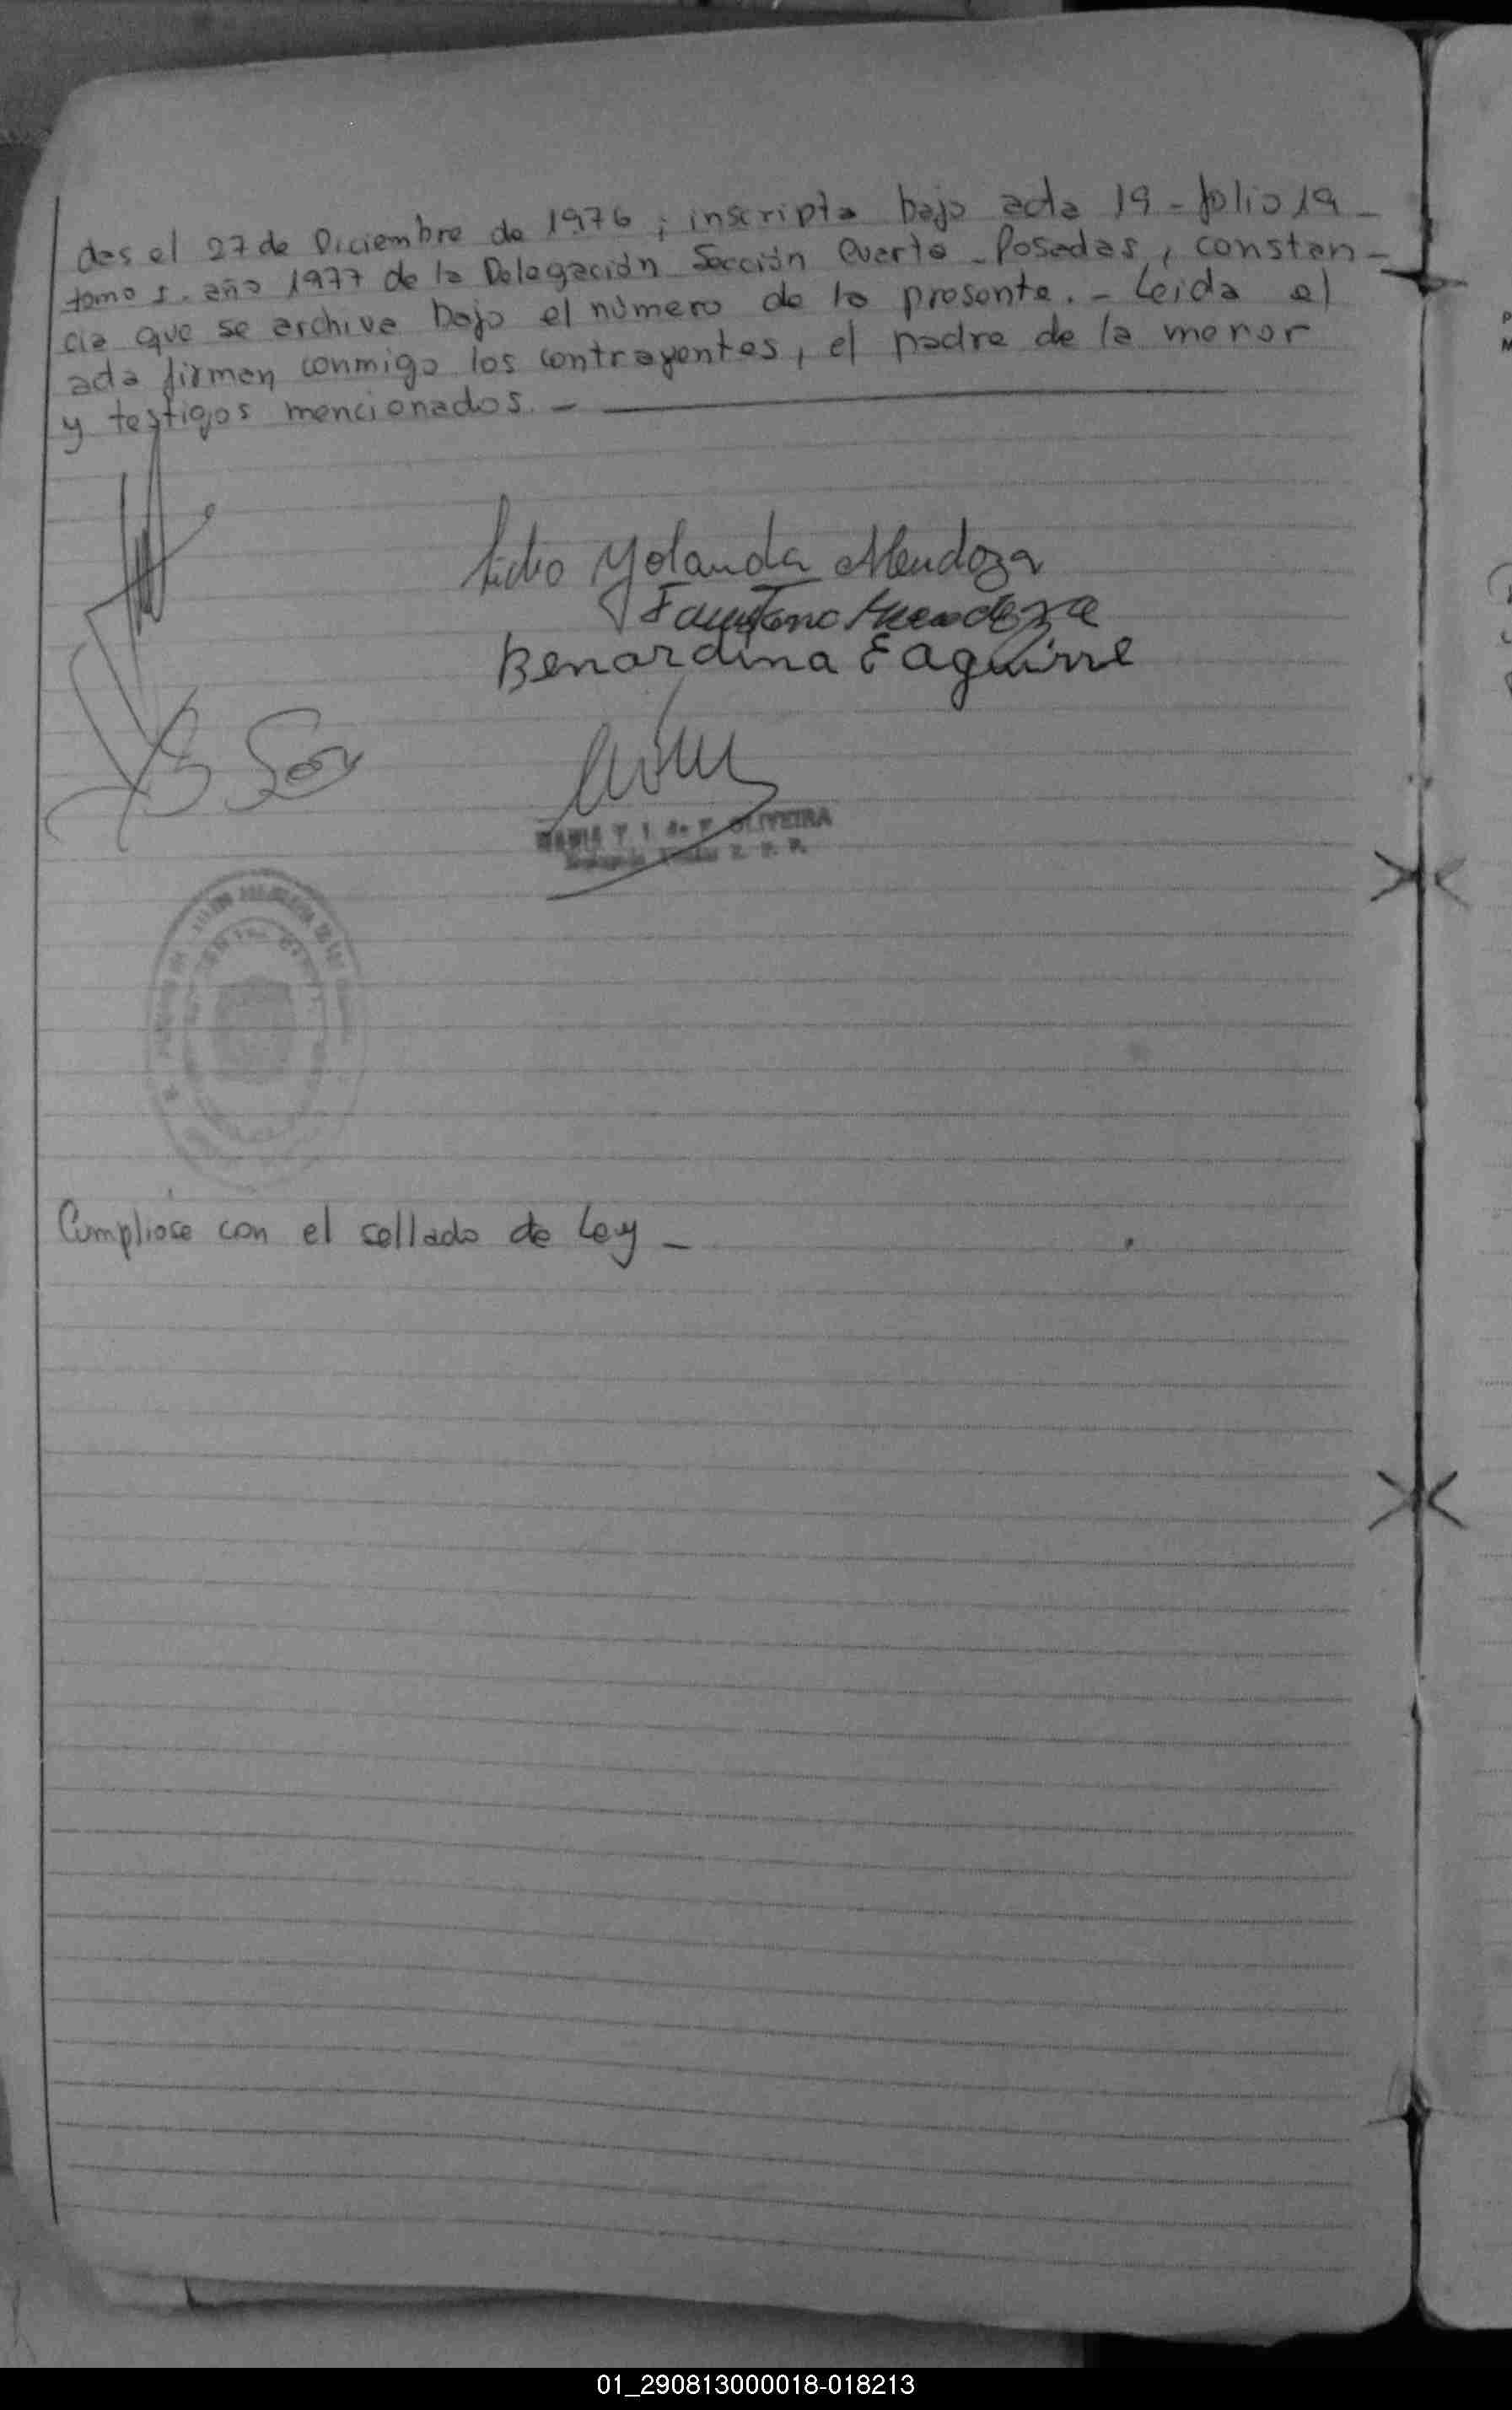 das el 27 de Diciembre de 1976; inscripta bajo acta 19 - folio 19 -
tomo I. año 1977 de la Delegación Sección Puerto - Posadas, constan-
cia que se archiva bajo el número de la presente. - Leida el
acta firman conmigo los contrayentes, el padre de la menor
y testigos mencionados. -
Lidia Yolanda Mendoza
Faustano Mendoza
Benardina E aguirre
OLIVEIRA
Cumpliose con el sellado de Ley -
01_290813000018-018213